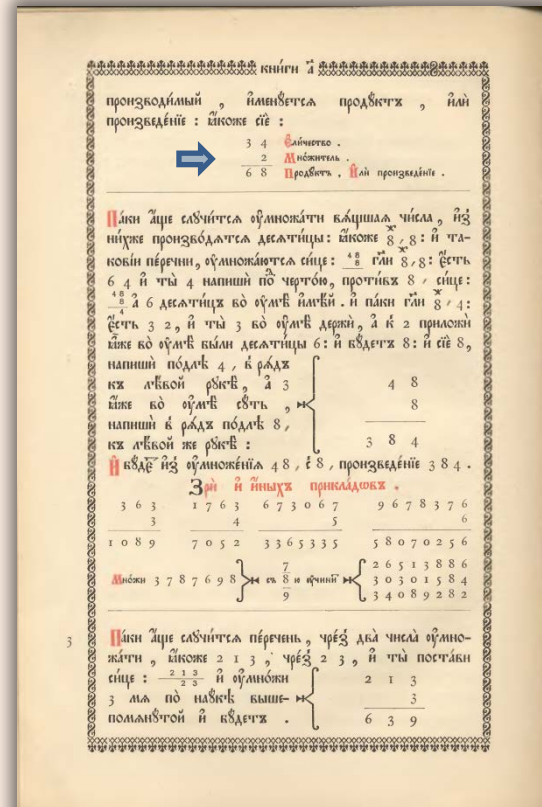 кни́ги а҃
производи́мый , и҆мену́ется проду́ктъ , и҆лѝ
произведе́нїе : ꙗ҆́коже сїѐ :
3 4 Е҆ли́чество .
2 Мно́житель .
6 8 Проду́ктъ , И҆лѝ произведе́нїе .
Па́ки а҆́ще случи́тся ᲂу҆множа́ти вѧ́щшаѧ чи́сла , и҆з̾
ни́хже произво́дятся десѧти́цы : ꙗ҆́коже 8 , 8 : и҆ та-
кові́и пе́речни , ᲂу҆множа́ются си́це : 48 8 гл҃и 8 , 8 : є҆́сть
6 4 и҆ ты̀ 4 напишѝ по̀д черто́ю , проти́въ 8 , си́це :
48 8 4 а҆ 6 десѧти́цъ во̀ ᲂу҆мѣ̀ и҆мѣ́й . и҆ па́ки гл҃и 8 , 4 :
є҆́сть 3 2 , и҆ ты̀ 3 во̀ ᲂу҆мѣ̀ держѝ , а҆ к̾ 2 приложѝ
ꙗ҆́же во̀ ᲂу҆мѣ̀ бы́ли десѧти́цы 6 : и҆ бу́детъ 8 : и҆ сїѐ 8 ,
напишѝ по́длѣ 4 , в̾ рѧ́дъ
къ лѣ́вой рꙋкѣ̀ , а҆ 3
ꙗ҆́же во̀ ᲂу҆мѣ̀ сꙋ́ть ,
напишѝ в̾ рѧ́дъ по́длѣ 8 ,
къ лѣ́вой же рꙋкѣ̀ :
4 8
8
3 8 4
И҆ бꙋ́дет и҆з̾ ᲂу҆множе́нїѧ 48 , с̾ 8 , произведе́нїе 3 8 4 .
Зрѝ и҆ и҆ны́хъ прикла́дѡвъ .
3 6 3 1 7 6 3 6 7 3 0 6 7 9 6 7 8 3 7 6
3 4 5 6
1 0 8 9 7 0 5 2 3 3 6 5 3 3 5 5 8 0 7 0 2 5 6
Мно́жи 3 7 8 7 6 9 8 съ 7 8 9 ю ᲂу҆чини́т 2 6 5 1 3 8 8 6
3 0 3 0 1 5 8 4
3 4 0 8 9 2 8 2
3 Па́ки а҆́ще случи́тся пе́речень , чре́з̾ два̀ числа̀ ᲂу҆мно-
жа́ти , ꙗ҆́коже 2 1 3 , чре́з̾ 2 3 , и҆ ты̀ поста́ви
си́це : 213 23 и҆ ᲂу҆мно́жи
3 мѧ по̀ наꙋ́кѣ вы́ше-
помѧнꙋ́той и҆ бꙋ́детъ .
2 1 3
3
6 3 9